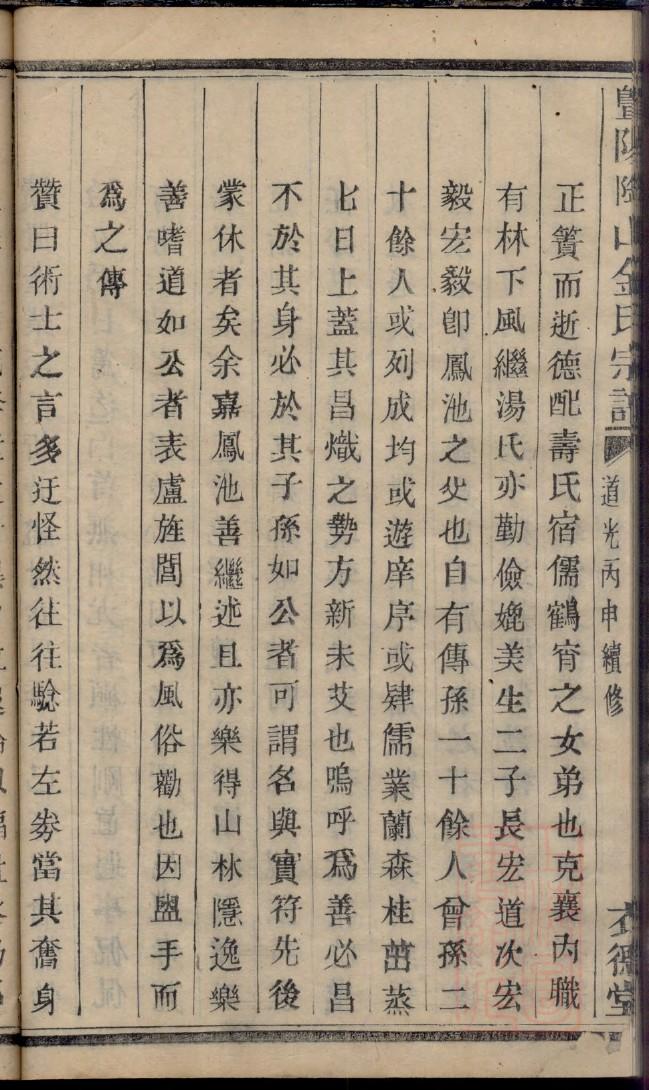 暨陽陶山金氏宗譜 道光丙申續修
正簀而逝德配壽氏宿儒鶴脊之女弟也克襄內職
有林下風繼湯氏亦勤儉媲美生二子長宏道次宏
毅宏毅卽鳳池之父也自有傳孫一十餘人曾孫二
十餘人或列成均或遊庠序或肄儒業蘭森桂茁蒸
七日上蓋其昌熾之勢方新未艾也嗚呼爲善必昌
不於其身必於其子孫如公者可謂名與實符先後
蒙休者矣余嘉鳳池善繼述且亦樂得山林隱逸樂
善嗜道如公者表廬旌閭以爲風俗勸也因盥手而
爲之傳
贊曰術士之言多迂怪然往往驗若左券當其奮身